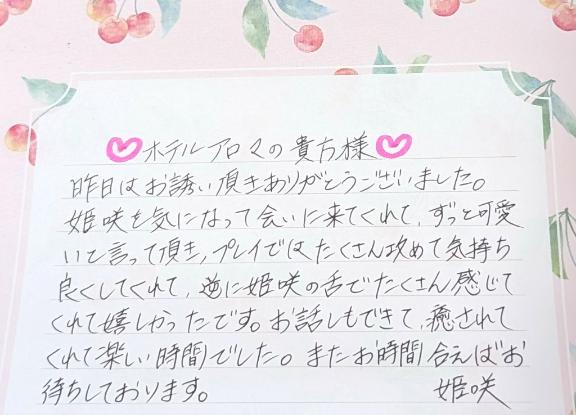 ホテルアロマの貴方様
昨日はお誘い頂きありがとうございました。
姫咲を気になって会いに来てくれて、ずっと可愛
いと言って頂き、プレイではたくさん攻めて気持ち
良くしてくれて、逆に姫咲の舌でたくさん感じて
くれて嬉しかったです。お話しもできて、癒されて
くれて楽しい時間でした。またお時間合えばお
待ちしております。 姫咲